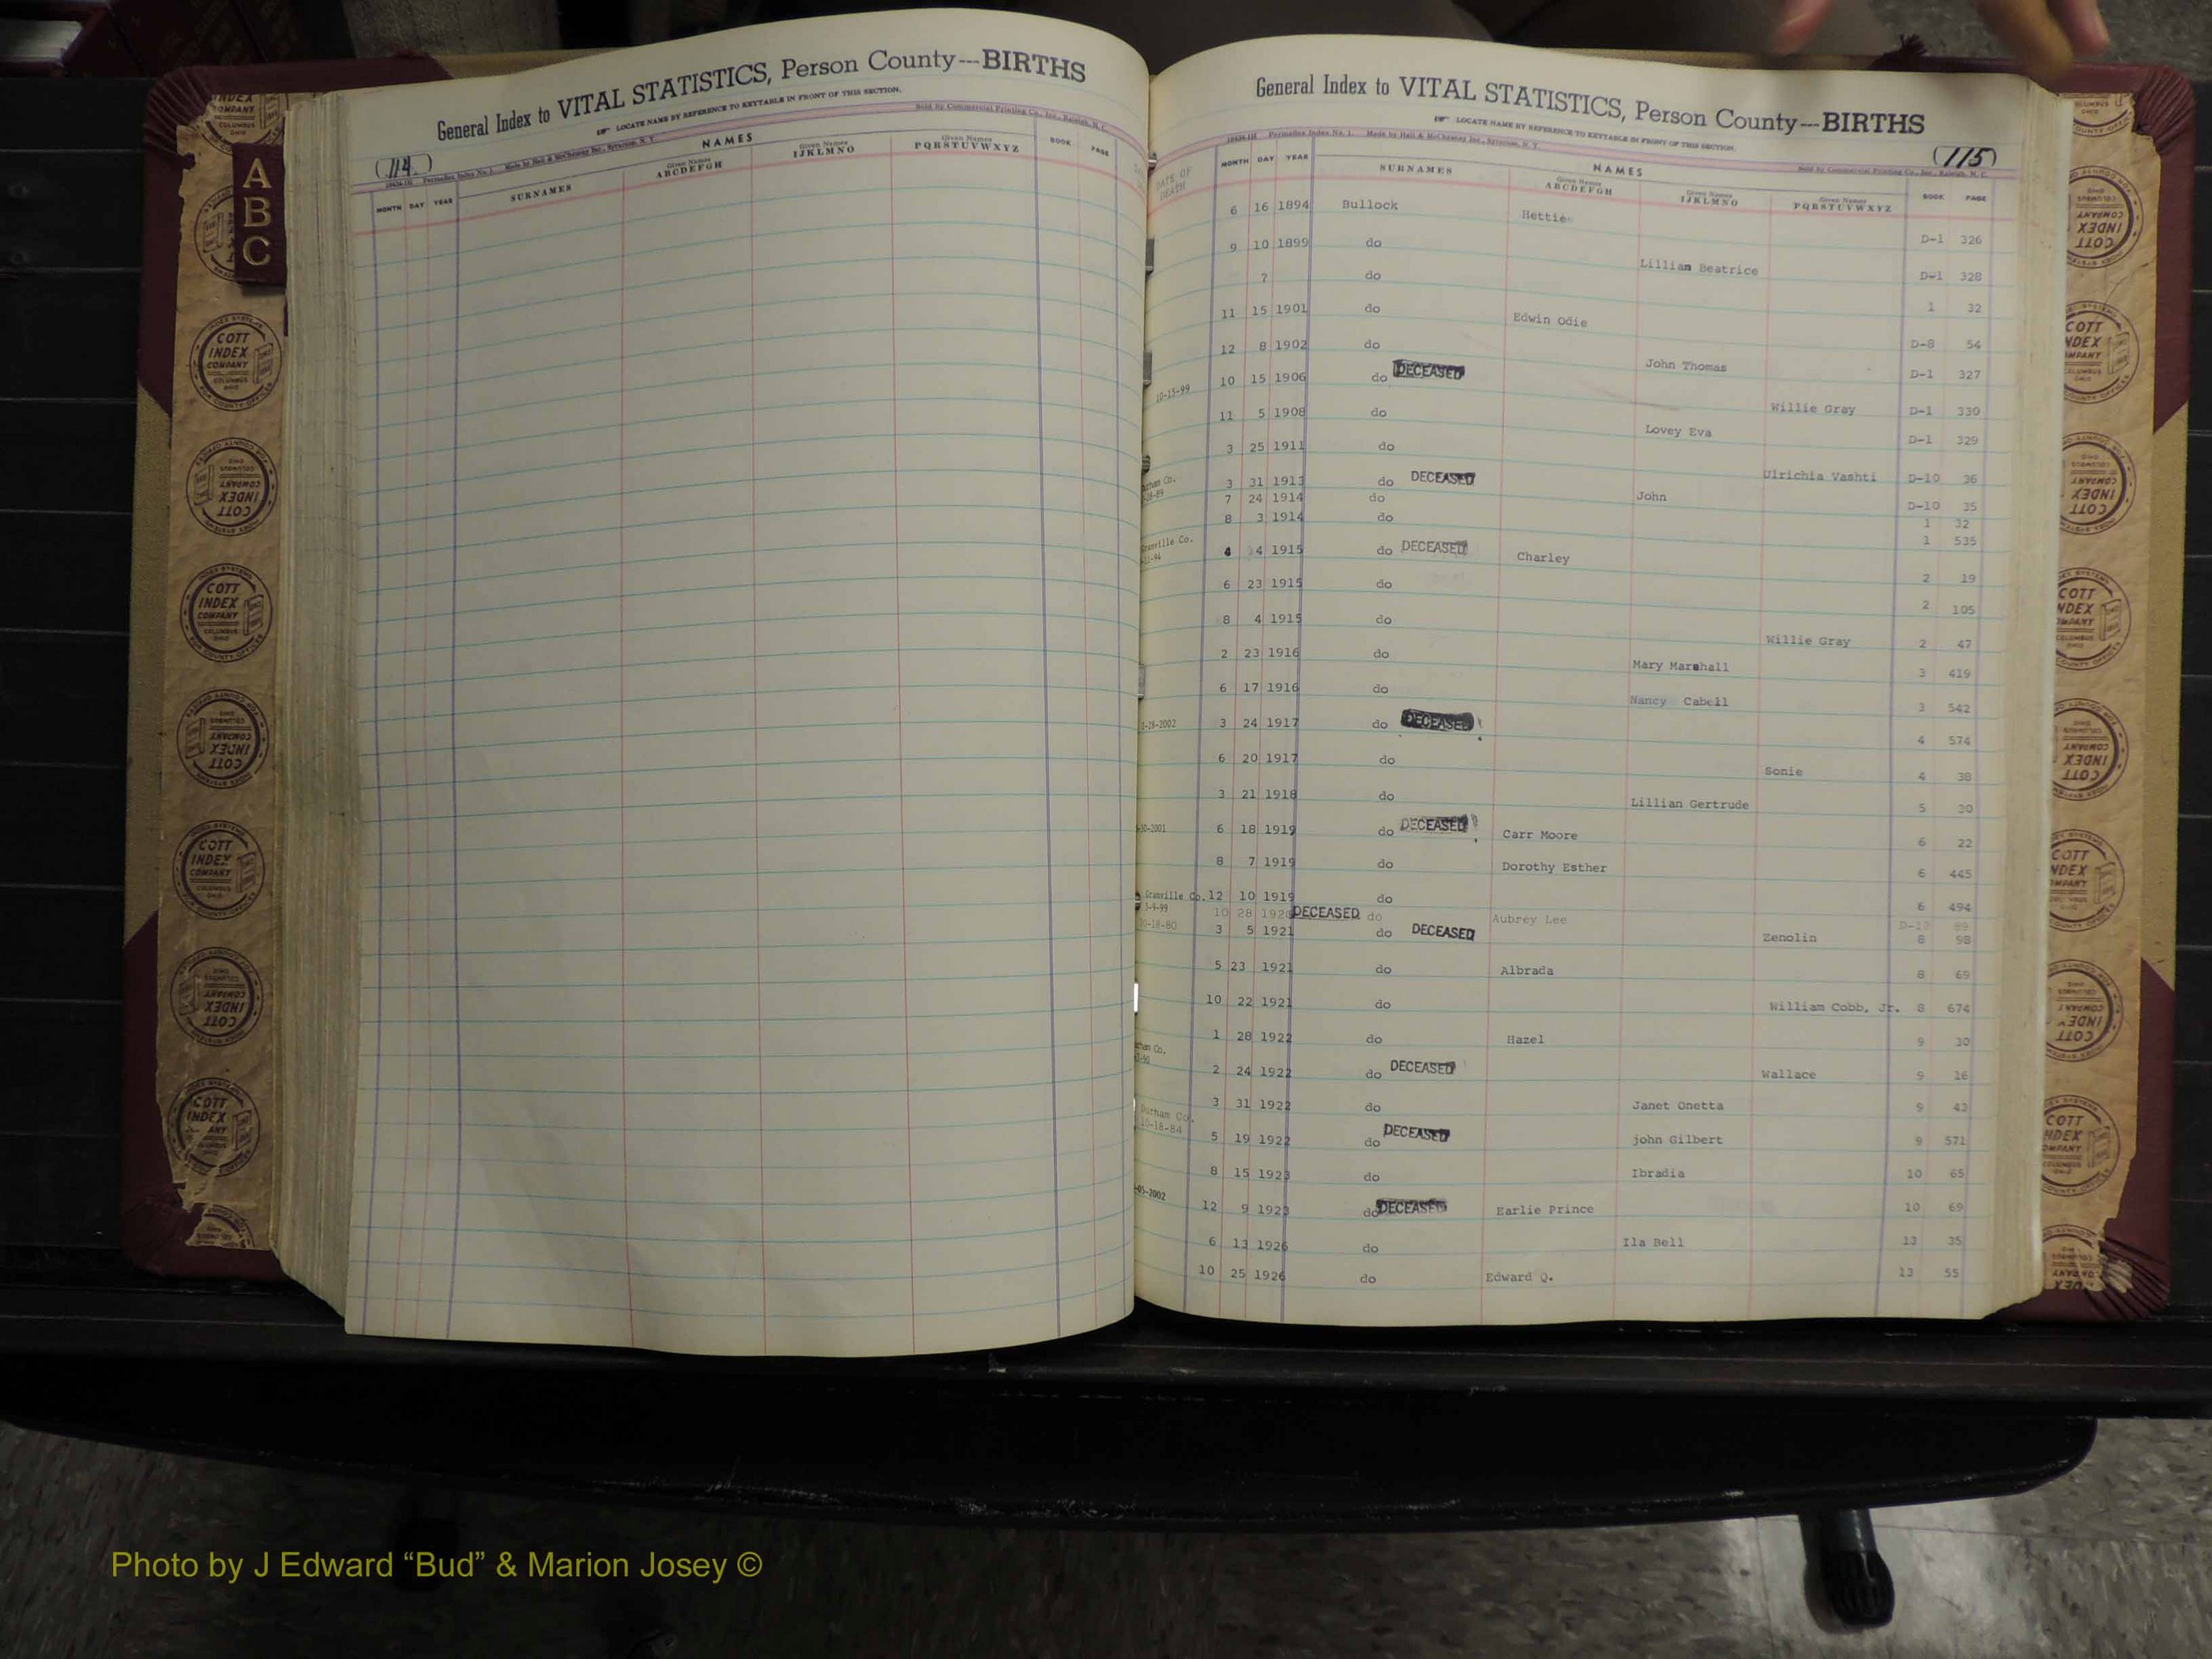 General Index to VITAL STATISTICS, Person County---BIRTHS
LOCATE NAME BY REFERENCE TO KEYTABLE IN FRONT OF THIS SECTION.
Sold by Commercial Printing Co., Inc., Raleigh, N. C.
(114)
NAMES
MONTH DAY YEAR SURNAMES Given Names ABCDEFGH Given Names IJKLMNO Given Names PQRSTUVWXYZ BOOK PAGE
A
B
C
General Index to VITAL STATISTICS, Person County---BIRTHS
LOCATE NAME BY REFERENCE TO KEYTABLE IN FRONT OF THIS SECTION.
(115)
NAMES
DATE OF DEATH MONTH DAY YEAR SURNAMES Given Names ABCDEFGH Given Names IJKLMNO Given Names PQRSTUVWXYZ BOOK PAGE
6 16 1894 Bullock Hettie D-1 326
9 10 1899 do Lillian Beatrice D-1 328
? do 1 32
11 15 1901 do Edwin Odie D-8 54
12 8 1902 do John Thomas D-1 327
10-15-99 10 15 1906 do DECEASED Willie Gray D-1 330
11 5 1908 do Lovey Eva D-1 329
3 25 1911 do Ulrichia Vashti D-10 36
3 31 1913 do DECEASED John D-10 35
7 24 1914 do 1 32
8 3 1914 do 1 535
Granville Co. 4 4 1915 do DECEASED Charley 2 19
6 23 1915 do 2 105
8 4 1915 do Willie Gray 2 47
2 23 1916 do Mary Marshall 3 419
6 17 1916 do Nancy Cabell 3 542
-28-2002 3 24 1917 do DECEASED 4 574
6 20 1917 do Sonie 4 38
3 21 1918 do Lillian Gertrude 5 30
-30-2001 6 18 1919 do DECEASED Carr Moore 6 22
8 7 1919 do Dorothy Esther 6 445
12 10 1919 do 6 494
Granville Co. 5-9-99 10 28 1920 DECEASED do Aubrey Lee
10-18-80 3 5 1921 do DECEASED Zenolin 8 98
5 23 1921 do Albrada 8 69
10 22 1921 do William Cobb, Jr. 8 674
1 28 1922 do Hazel 9 30
2 24 1922 do DECEASED Wallace 9 16
3 31 1922 do Janet Onetta 9 43
Durham Co. 10-18-84 5 19 1922 do DECEASED john Gilbert 9 571
8 15 1923 do Ibradia 10 65
-05-2002 12 9 1923 do DECEASED Earlie Prince 10 69
6 13 1926 do Ila Bell 13 35
10 25 1926 do Edward Q. 13 55
COTT INDEX COMPANY COLUMBUS OHIO
Photo by J Edward “Bud” & Marion Josey ©